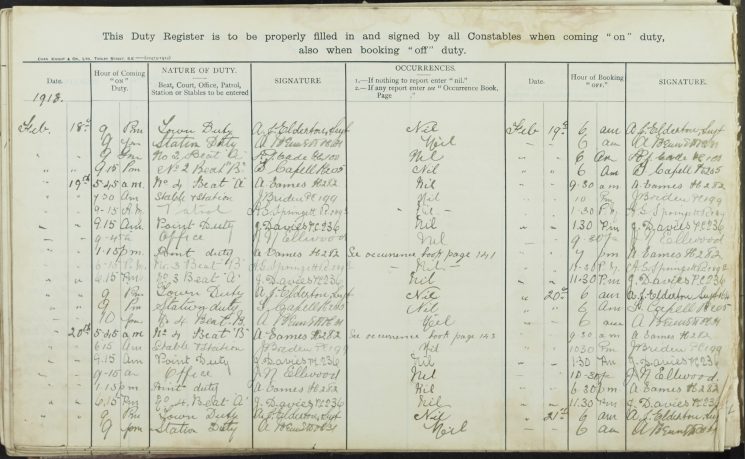 This Duty Register is to be properly filled in and signed by all Constables when coming "on" duty,
also when booking "off" duty.
Date. Hour of Coming "on" Duty. NATURE OF DUTY. Beat, Court, Office, Patrol, Station or Stables to be entered SIGNATURE OCCURRENCES. 1.—If nothing to report enter "nil." 2.—If any report enter see "Occurrence Book, Page ." Date. Hour of Booking "OFF." SIGNATURE.
1913.
Feb. 18th 9 Pm Town Duty A. J. Elderton, Supt Nil Feb 19th 6 am A. J. Elderton, Supt
" " 9 Pm Station Duty Nil " " 6 am
" " 9 Pm No 2 Beat 'A' Nil " " 6 am
" " 9.15 Pm No 2 Beat 'B' Capell Nil " " 6 am Capell
" 19th 5.45 a.m. No 4 Beat 'A' A Eames Pc 282 Nil " " 9.30 am A Eames Pc 282
" " 7.30 am Stable & Station J Breden Pc 199 Nil " " 10 Pm J Breden Pc 199
" " 9-15 A.M. Springett Nil " " 1.30 P.M. Springett
" " 9.15 Am. Point Duty J. Davies Pc 236 Nil " " 1.30 Pm J. Davies Pc 236
" " 9-45a Office J. N. Ellwood Nil " " J. N. Ellwood
" " 1.15 pm Point duty A Eames Pc 282 See occurrence book page 141 " " 7 pm A Eames Pc 282
" " No. 3 Beat 'B' Springett Nil " " 11-30 P.M. Springett
" " 6.15 Pm No 3 Beat 'A' J. Davies Pc 236 Nil " " 11-30 Pm J. Davies Pc 236
" " 9 Pm Town Duty A. J. Elderton, Supt Nil " 20th 6 am A. J. Elderton, Supt
" " 9 Pm Station duty Capell Nil " " 6 am Capell
" " 10 Pm No 4 Beat B. Nil " " 6 am
" 20th 5.45 a.m. No 4 Beat 'B' A Eames Pc 282 See occurrence book page 143 " " 9.30 am A Eames Pc 282
" " 6.15 Am Stable & Station J Breden Pc 199 Nil " " 10.30 Pm J Breden Pc 199
" " 9.15 Am Point Duty J. Davies Pc 236 Nil " " 1.30 Pm J. Davies Pc 236
" " 9-15 a Office J. N. Ellwood Nil " " 10-30p J. N. Ellwood
" " 1.15 pm Point duty A Eames Pc 282 Nil " " 6.30 pm A Eames Pc 282
" " 6.15 Pm No 4 Beat 'A' J. Davies Pc 236 Nil " " 11.30 Pm J. Davies Pc 236
" " 9 Pm Town Duty A. J. Elderton, Supt Nil " 21st 6 am A. J. Elderton, Supt
" " 9 pm Station Duty Nil " " 6 am